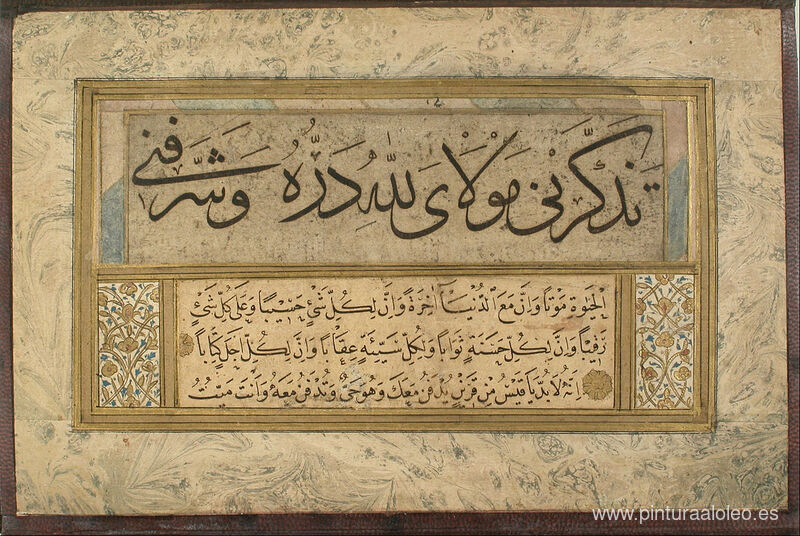 تَذَكَّرَنِي مَوْلَايَ لِلّٰهِ دَرُّهُ وَشَرَّفَنِي
الحَيٰوةِ مَوْتًا وَاِنَّ مَعَ الدُّنْيَا آخِرَةً وَاِنَّ لِكُلِّ شَئٍ حَسِيبًا وَعَلٰى كُلِّ شَئٍ
رَقِيبًا وَاِنَّ لِكُلِّ حَسَنَةٍ ثَوَابًا وَلِكُلِّ سَيِّئَةٍ عِقَابًا وَاِنَّ لِكُلِّ اَجَلٍ كِتَابًا
اِنَّهُ لَا بُدَّ يَا قَيْسُ مِنْ قَرِينٍ يُدْفَنُ مَعَكَ وَهُوَ حَيٌّ وَتُدْفَنُ مَعَهُ وَاَنْتَ مَيِّتٌ
www.pinturaaloleo.es